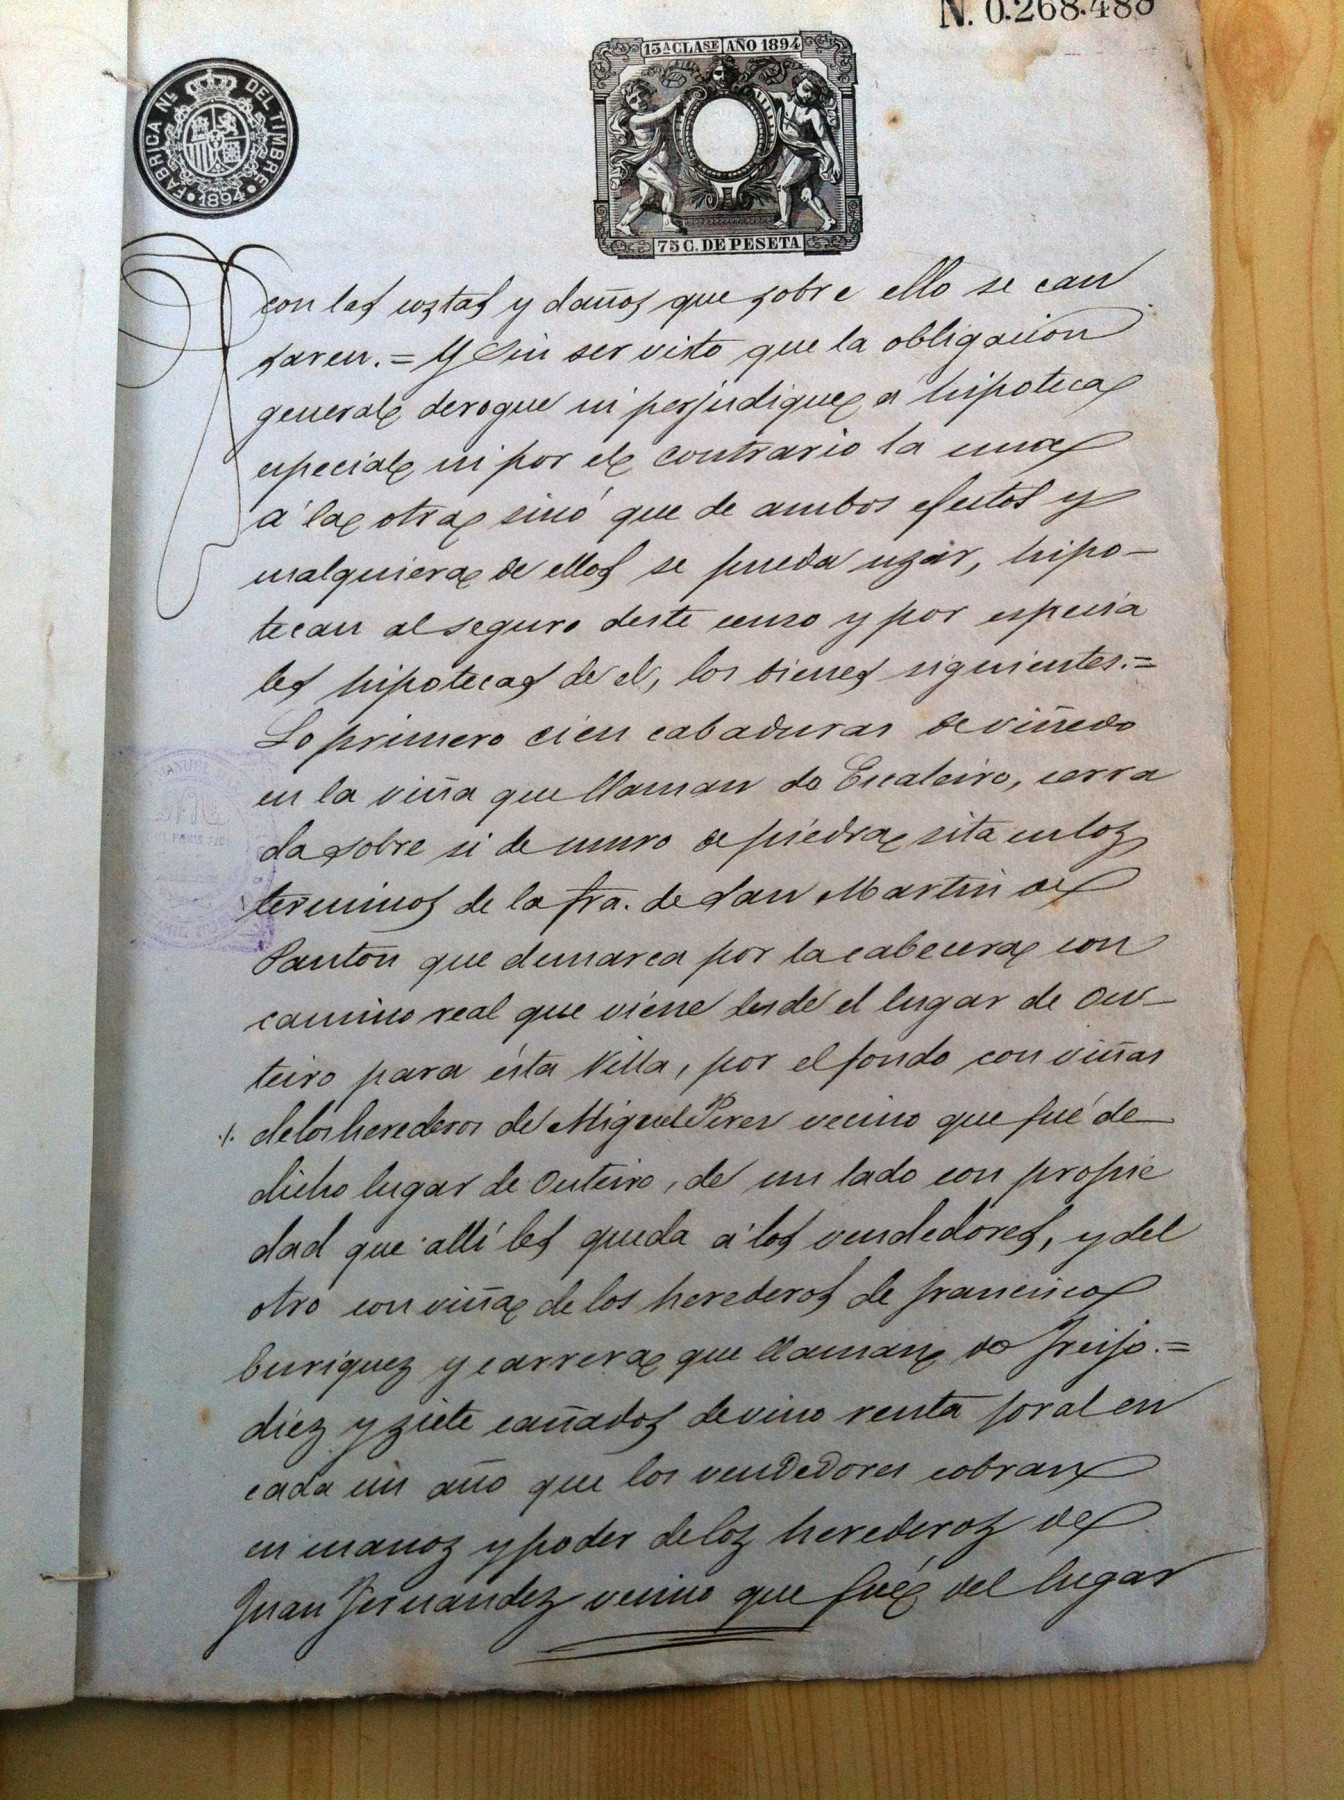 N. 0.268.488
15A CLASE AÑO 1894
FABRICA NL. DEL TIMBRE
1894
75 C. DE PESETA
con les costas y daños que sobre ello se cau
saren.= Y sin ser visto que la obligacion
general derogue ni perjudique a hipoteca
especial ni por el contrario la una
á la otra sinó que de ambos efectos y
cualquiera de ellos se pueda uzar, hipo-
tecan al seguro deste censo y por especia
les hipotecas de el, los bienes siguientes.=
Lo primero cien cabaduras de viñedo
en la viña que llaman do Escaleiro, cerra
da sobre si de muro de piedra sita en loz
terminos de la fra. de San Martin de
Panton que demarca por la cabecera con
camino real que viene desde el lugar de Ou-
teiro para ésta Villa, por el fondo con viñas
./. delos herederos de Miguel Perez vecino que fué de
dicho lugar de Outeiro, de un lado con propie
dad que allí les queda á los vendedores, y del
otro con viña de los herederos de francisco
Enriquez y carrera que llaman do freijo.=
diez y ziete cañados de vino renta foral en
cada un año que los vendedores cobran
en manoz y poder de loz herederoz de
Juan Fernandez vecino que fué del lugar